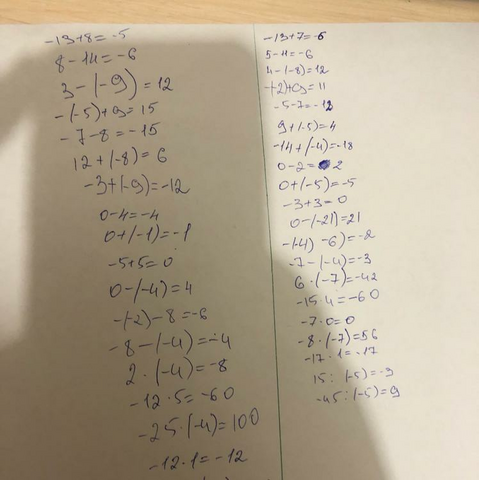 -13+8=-5
8-14=-6
3-(-9)=12
-(-5)+9=15
-7-8=-15
12+(-8)=6
-3+(-9)=-12
0-4=-4
0+(-1)=-1
-5+5=0
0-(-4)=4
-(-2)-8=-6
-8-(-4)=-4
2·(-4)=-8
-12·5=-60
-25·(-4)=100
-12·1=-12
-13+7=-6
5-11=-6
4-(-8)=12
-(-2)+9=11
-5-7=-12
9+(-5)=4
-14+(-4)=-18
0-2=2
0+(-5)=-5
-3+3=0
0-(-21)=21
-(-4)-6)=-2
-7-(-4)=-3
6·(-7)=-42
-15·4=-60
-7·0=0
-8·(-7)=56
-17·1=-17
15:(-5)=-3
-45:(-5)=9